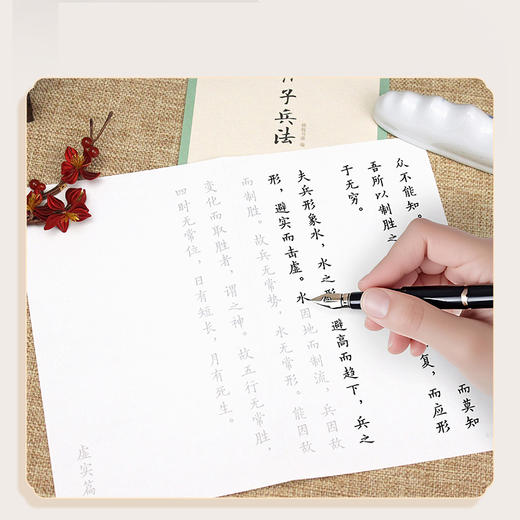 子兵法
众不能知。 而莫知
吾所以制胜之 复，而应形
于无穷。
夫兵形象水，水之形 避高而趋下，兵之
形，避实而击虚。水因地而制流，兵因敌
而制胜。故兵无常势，水无常形。能因敌
变化而取胜者，谓之神。故五行无常胜，
四时无常位，日有短长，月有死生。
虚实篇